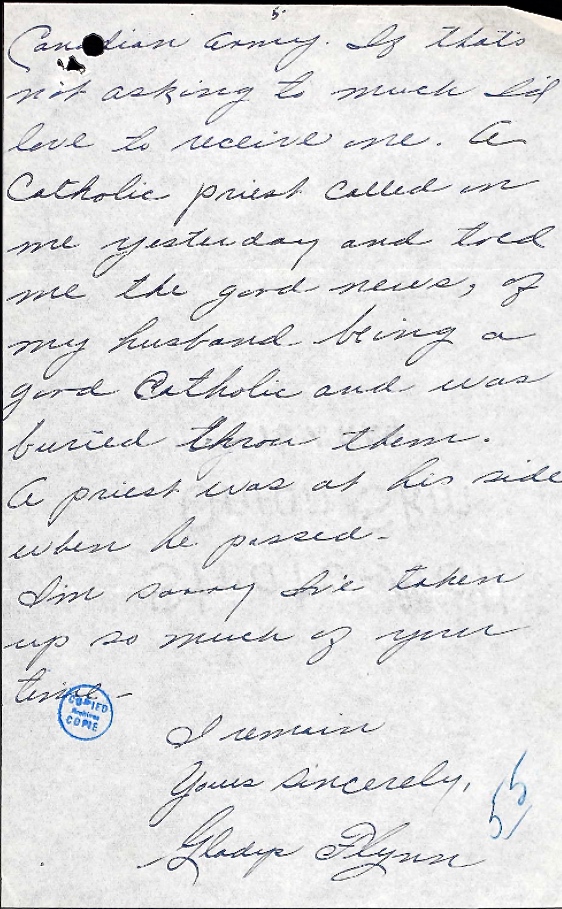 5
Canadian Army. If that's
not asking to much I'd
love to receive one. A
Catholic priest called on
me yesterday and told
me the good news, of
my husband being a
good Catholic and was
buried throu them.
A priest was at his side
when he passed-
I'm sorry I've taken
up so much of your
time-
COPIED
Archives
COPIE
I remain
Yours sincerely,
Gladys Flynn
55